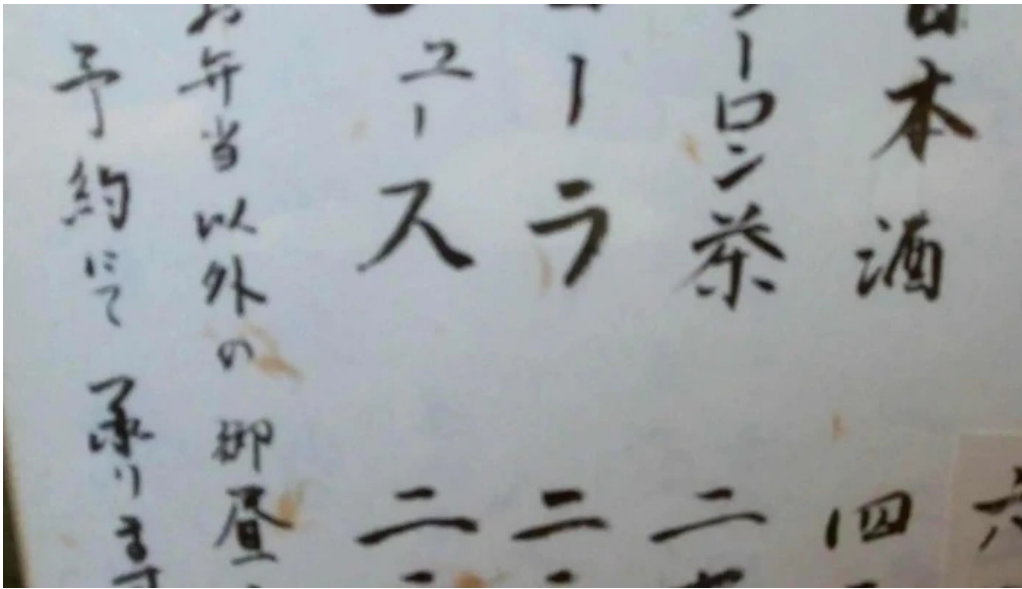 六
日本酒 四
ーロン茶 二
ーラ 二
ュース 二
お弁当以外の御昼
予約にて承ります